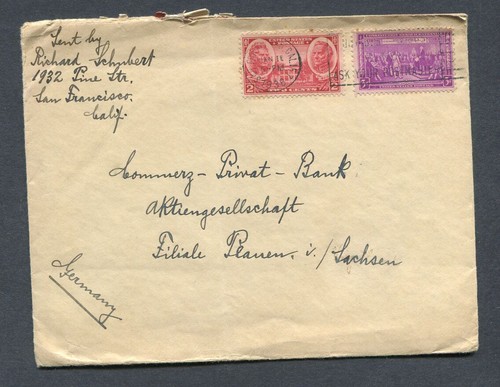 Sent by
Richard Schubert
1932 Pine Str.
San Francisco.
Calif.
2
CENTS
Commerz-Privat-Bank
Aktiengesellschaft
Filiale Plauen. i./Sachsen
Germany